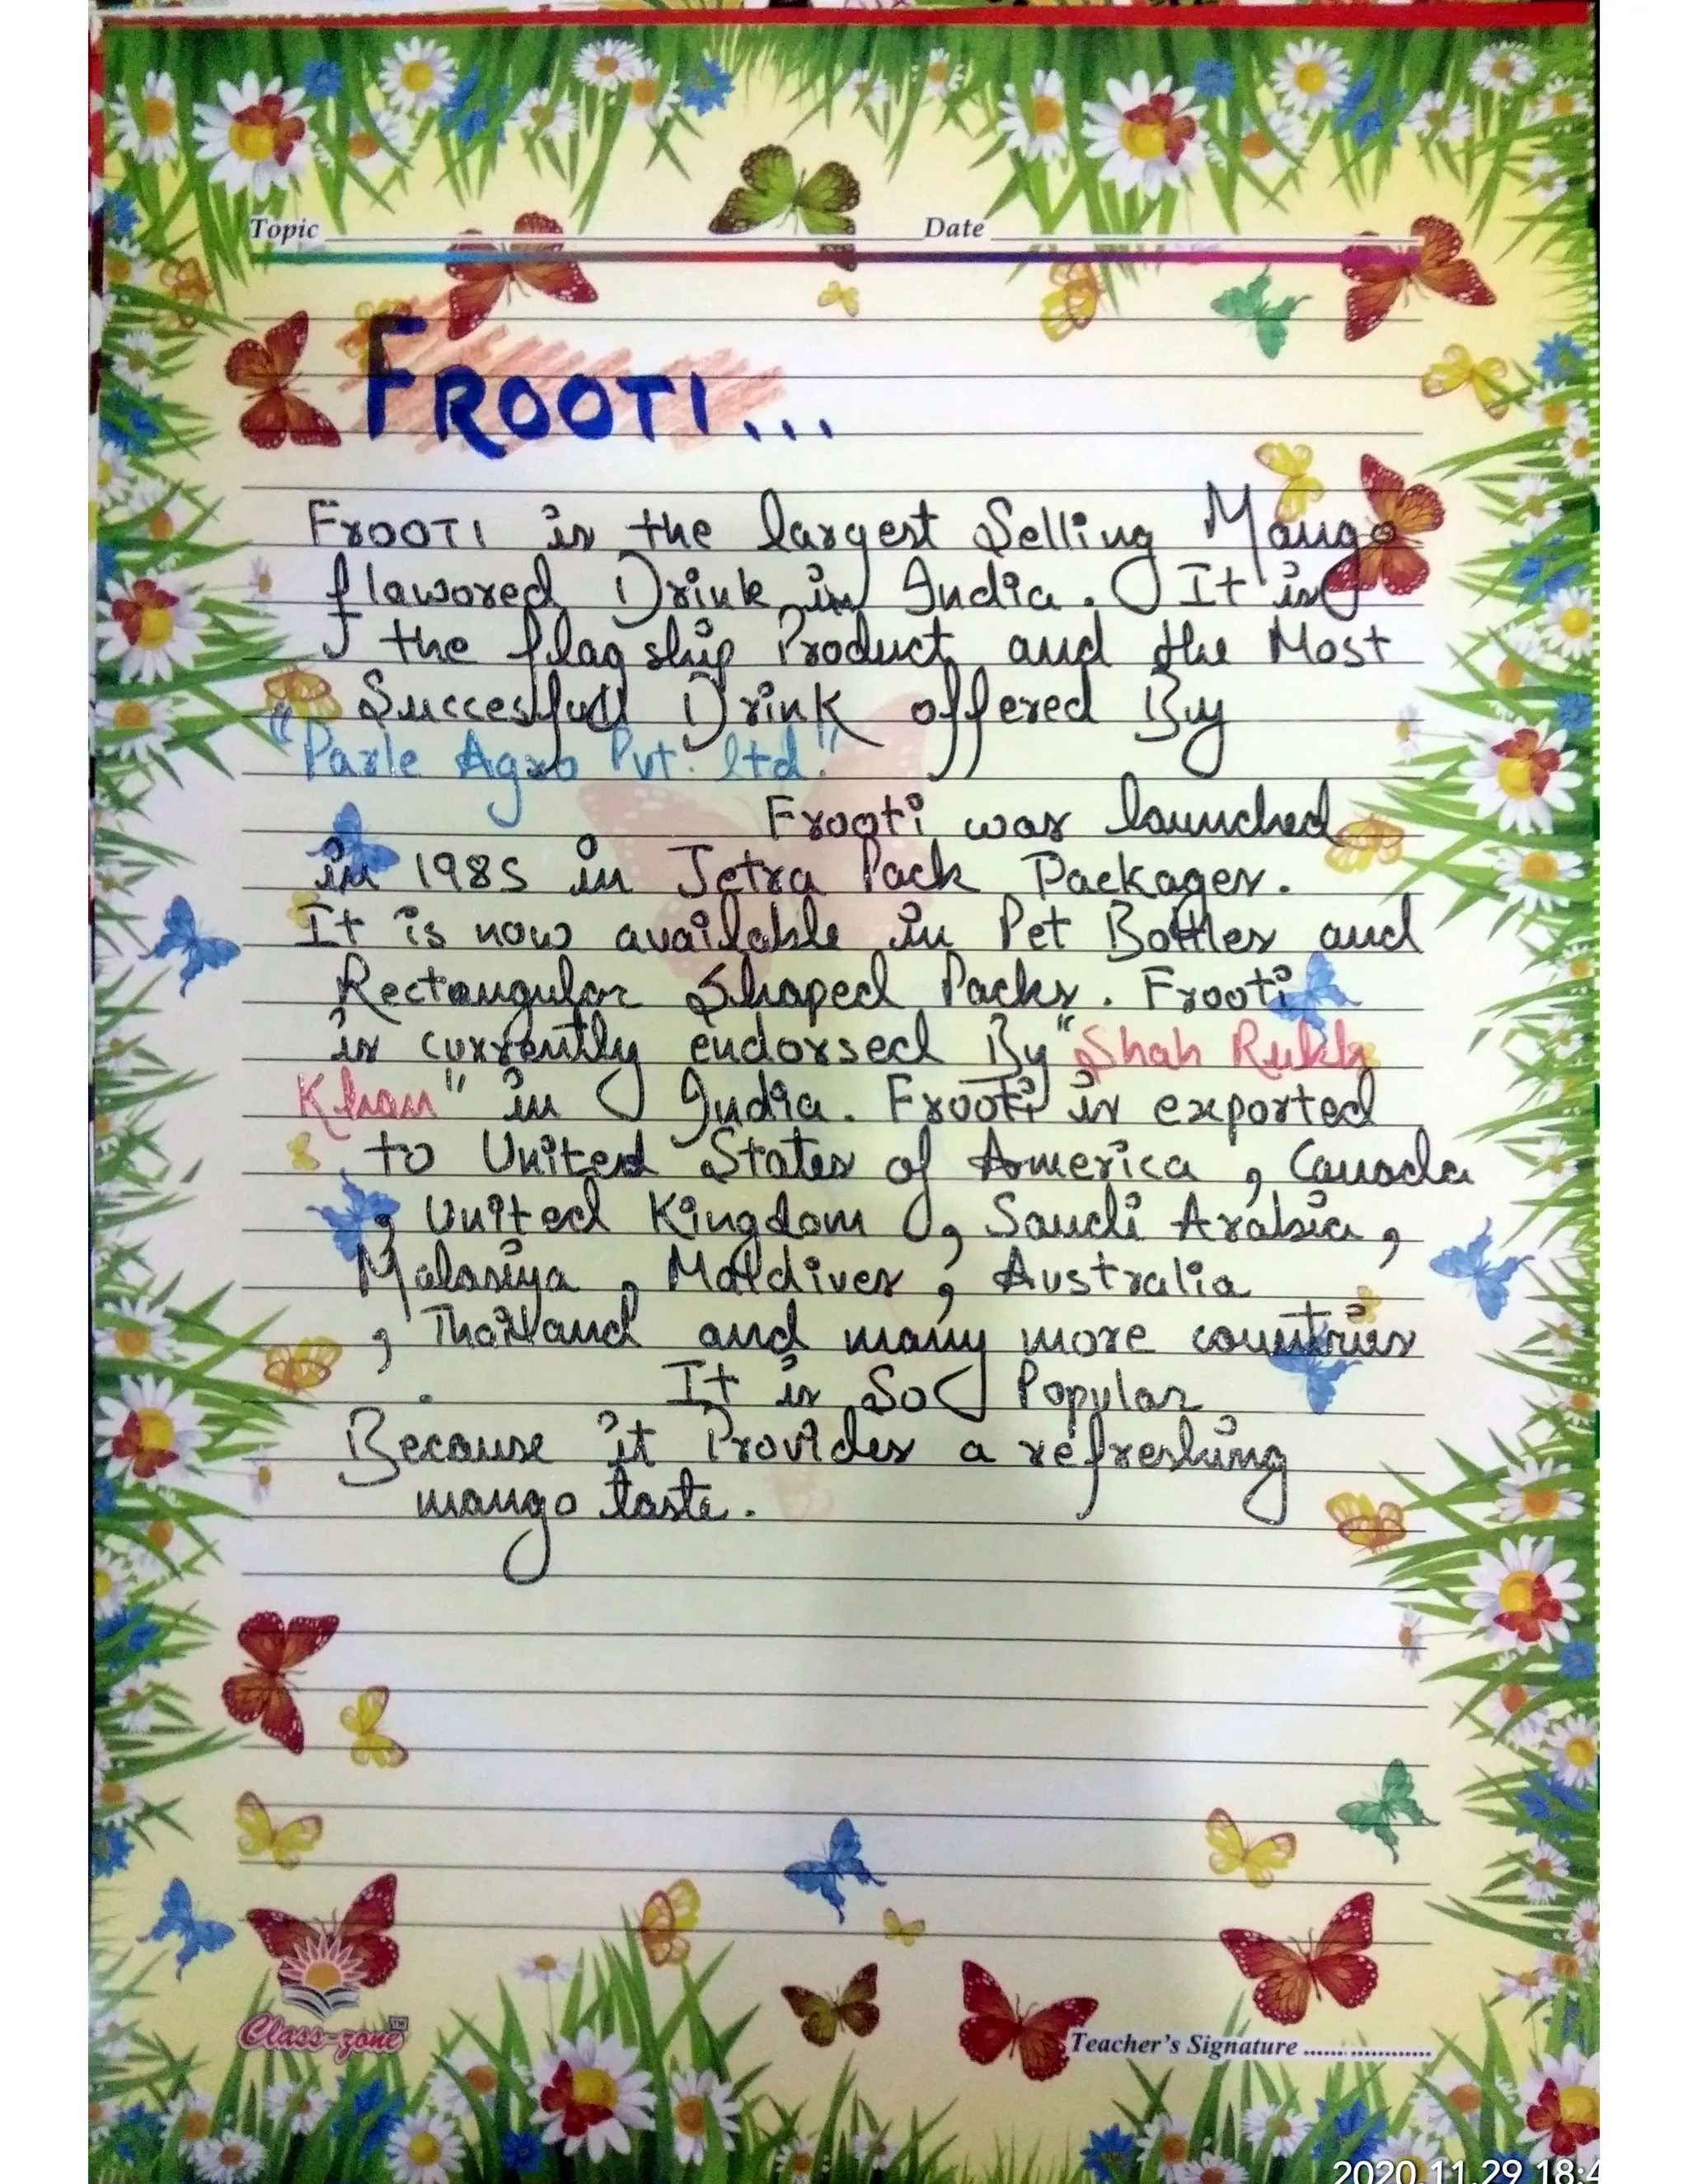 Topic Date
FROOTI...
FrOOTI is the largest Selling Mango
flawored Drink in India. It is
the flag ship Product and the Most
Succesfull Drink offered By
"Parle Agro Pvt. ltd."
Frooti was launched
in 1985 in Tetra Pack Packages.
It is now available in Pet Bottles and
Rectangular Shaped Packs. Frooti
is currently endorsed By "Shah Rukh
Khan" in India. Frooti is exported
to United States of America, Canada
, United Kingdom, Saudi Arabia,
Malasiya, Maldives, Australia
, Thailand and many more countries
. It is So Popular
Because it Provides a refreshing
mango taste.
Class-zone™
Teacher's Signature ......................
2020.11.29 18:4